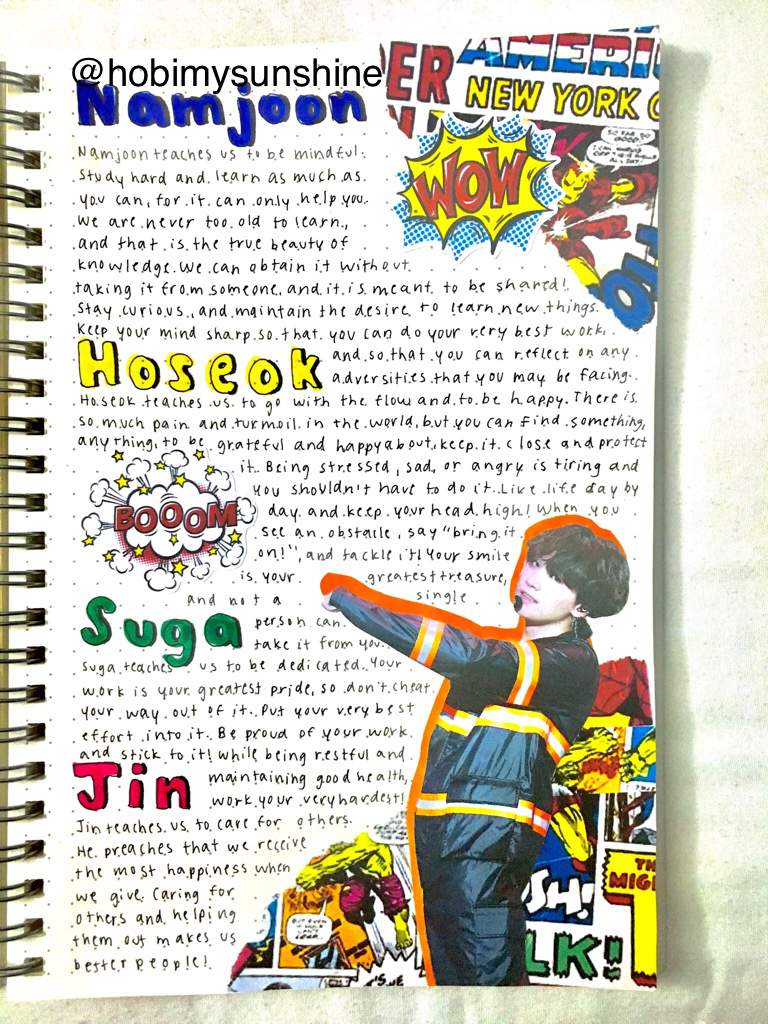 @hobimysunshine
Namjoon
Namjoon teaches us to be mindful.
Study hard and learn as much as
you can, for it can only help you.
We are never too old to learn,
and that is the true beauty of
knowledge. We can obtain it without
taking it from someone, and it is meant to be shared!
Stay curious, and maintain the desire to learn new things.
Keep your mind sharp so that you can do your very best work,
and so that you can reflect on any
adversities that you may be facing.
Hoseok
Hoseok teaches us to go with the flow and to be happy. There is
so much pain and turmoil in the world, but you can find something,
anything, to be grateful and happy about, keep it close and protect
it. Being stressed, sad, or angry is tiring and
you shouldn't have to do it. Live life day by
day and keep your head high! When you
see an obstacle, say "bring it
on!", and tackle it! Your smile
is your greatest treasure,
and not a single
person can
take it from you.
Suga
Suga teaches us to be dedicated. Your
work is your greatest pride, so don't cheat
your way out of it. Put your very best
effort into it. Be proud of your work
and stick to it! While being restful and
maintaining good health,
work your very hardest!
Jin
Jin teaches us to care for others.
He preaches that we receive
the most happiness when
we give. Caring for
others and helping
them out makes us
better people!
ER
AMERI
NEW YORK
WOW
BOOOM
SH!
LK!
TH
MIG